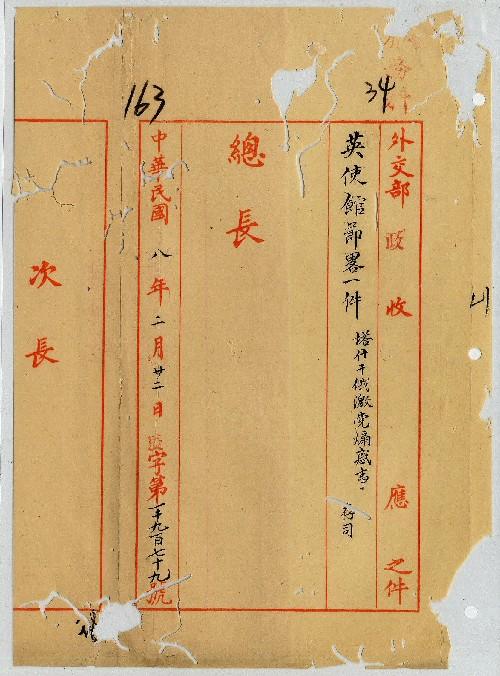 34
外交部 收 應 之件
英使館節畧一件 塔什干俄激党煽惑事
行司
總長
163
中華民國八年二月廿二日 字第一千九百七十九號
次長